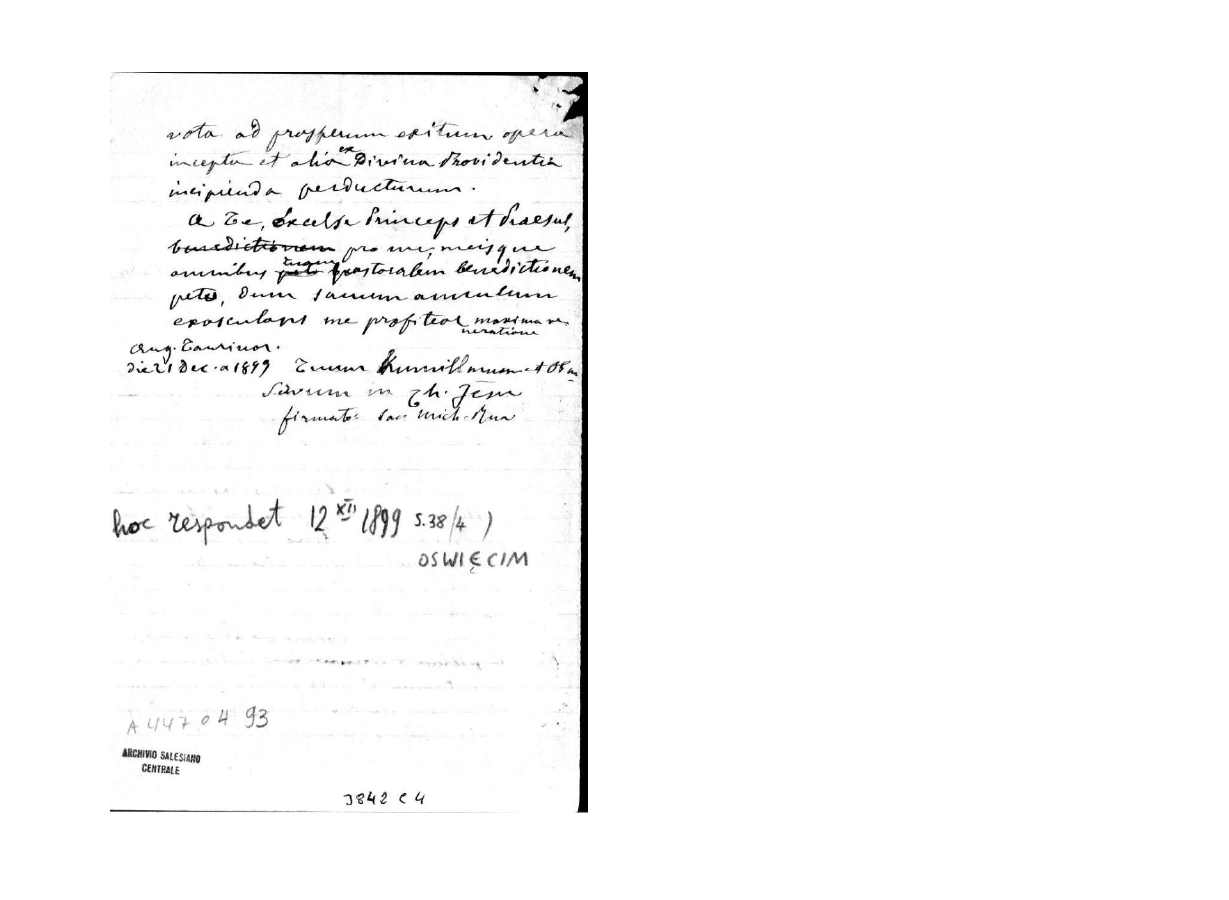 vota ad prosperum exitum opera
incepta et alia ex Divina Providentia
incipienda perducturum.
A Te, Excelse Princeps et Praesul,
benedictionem pro me, meisque
omnibus peto tuam pastoralem benedictionem
peto, dum sacrum annulum
exosculans me profiteor maxima ve-
neratione
Aug. Taurinor.
die 21 Dec. a 1899 Tuum humillimum et
Servum in Ch. Jesu
firmato: Sac Mich. Rua
hoc respondet 12 XII 1899 S.38/4 )
OSWIĘCIM
A 447 04 93
ARCHIVIO SALESIANO
CENTRALE
3842 C 4